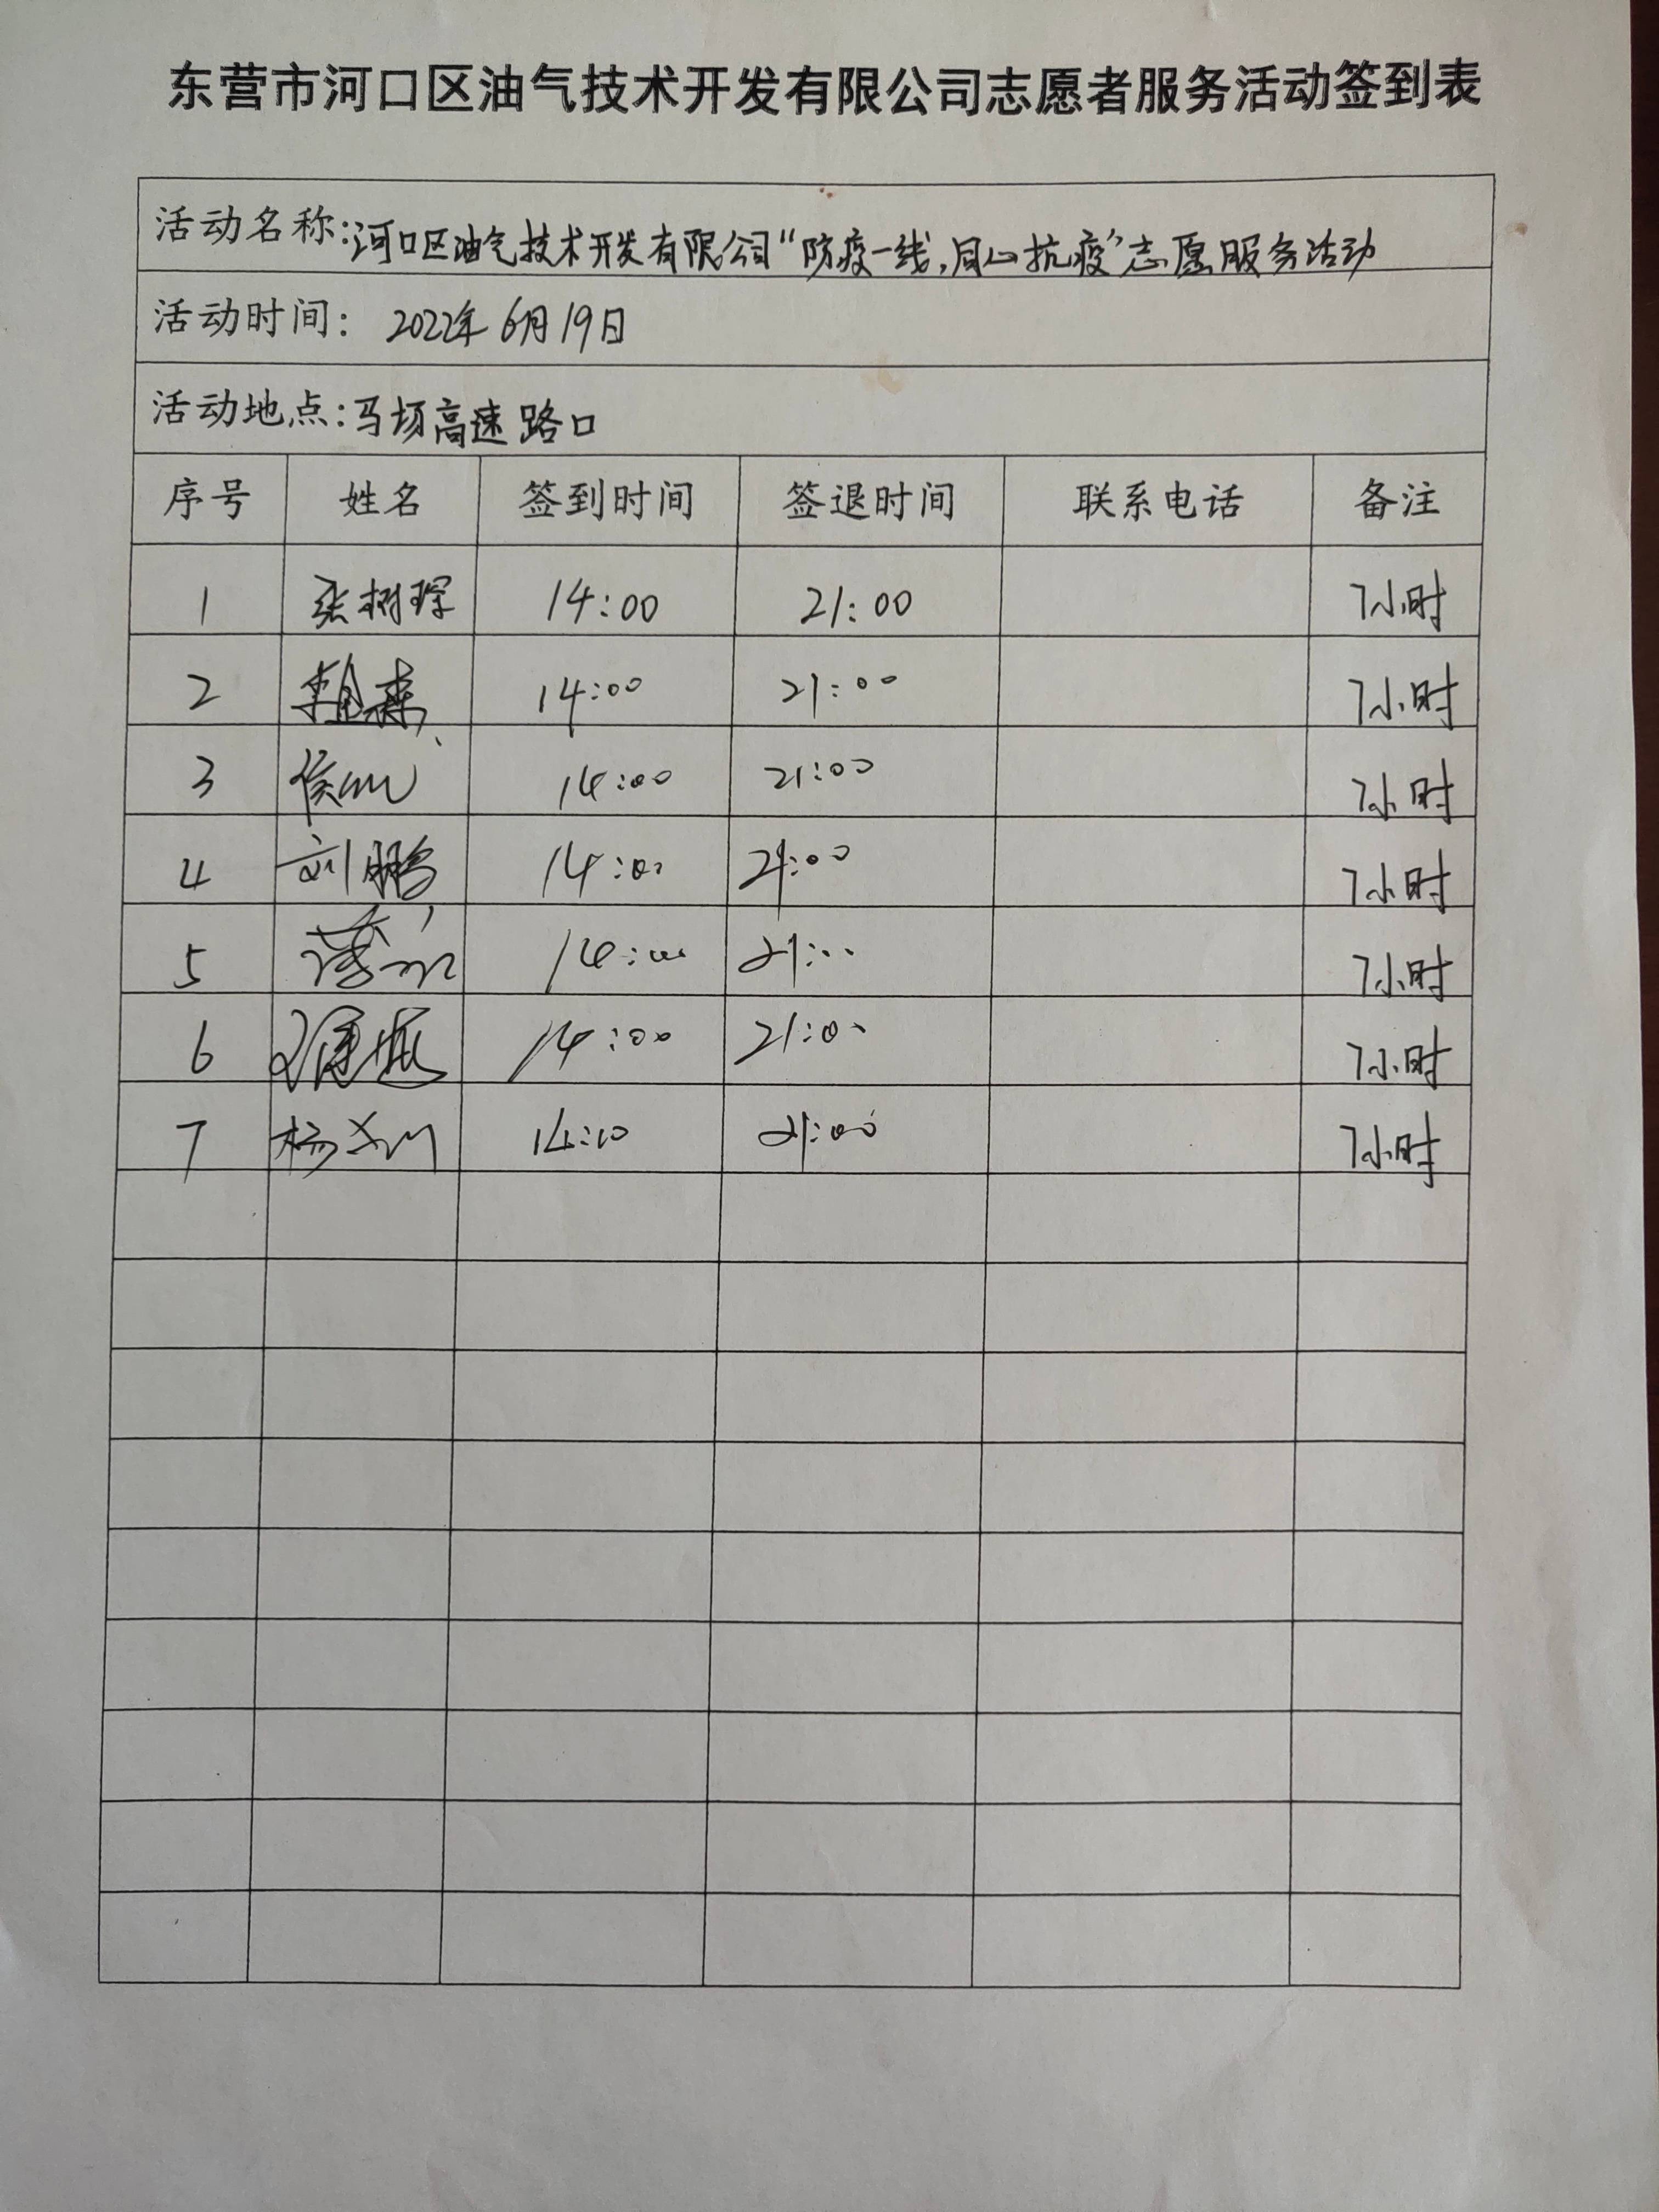 东营市河口区油气技术开发有限公司志愿者服务活动签到表
活动名称:河口区油气技术开发有限公司“防疫一线,同心抗疫”志愿服务活动
活动时间: 2022年6月19日
活动地点:马场高速路口
序号 姓名 签到时间 签退时间 联系电话 备注
1 张树琛 14:00 21:00 7小时
2 14:00 21:00 7小时
3 14:00 21:00 7小时
4 刘鹏 14:00 21:00 7小时
5 14:00 21:00 7小时
6 14:00 21:00 7小时
7 21:00 7小时